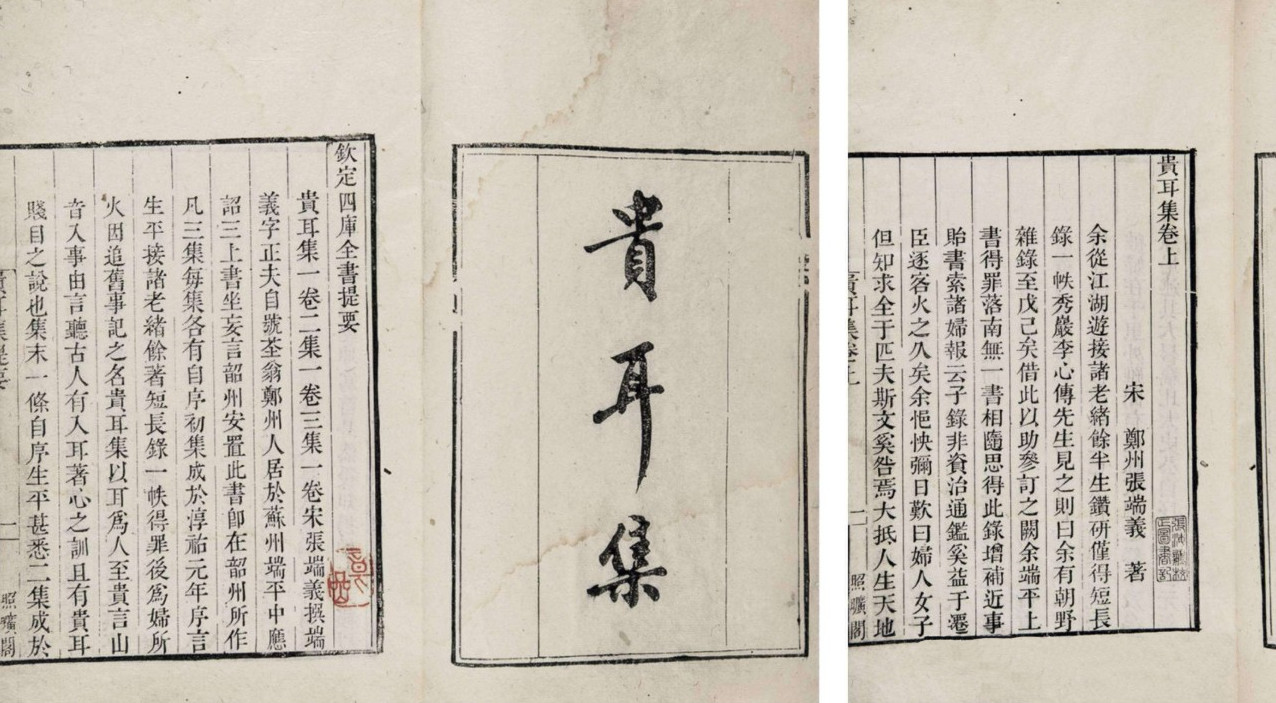 貴耳集
欽定四庫全書提要
貴耳集一卷二集一卷三集一卷宋張端義撰端
義字正夫自號荃翁鄭州人居於蘇州端平中應
詔三上書坐妄言韶州安置此書卽在韶州所作
凡三集每集各有自序初集成於淳祐元年序言
生平接諸老緒餘著短長錄一帙得罪後爲婦所
火因追舊事記之名貴耳集以耳爲人至貴言山
音入事由言聽古人有入耳著心之訓且有貴耳
賤目之說也集末一條自序生平甚悉二集成於
一
照曠閣
貴耳集卷上
宋 鄭州張端義 著
余從江湖遊接諸老緒餘半生鑽研僅得短長
錄一帙秀巖李心傳先生見之則曰余有朝野
雜錄至戊己矣借此以助參訂之闕余端平上
書得罪落南無一書相隨思得此錄增補近事
貽書索諸婦報云子錄非資治通鑑奚益于遷
臣逐客火之久矣余悒怏彌日歎曰婦人女子
但知求全于匹夫斯文奚咎焉大抵人生天地
一
照曠閣